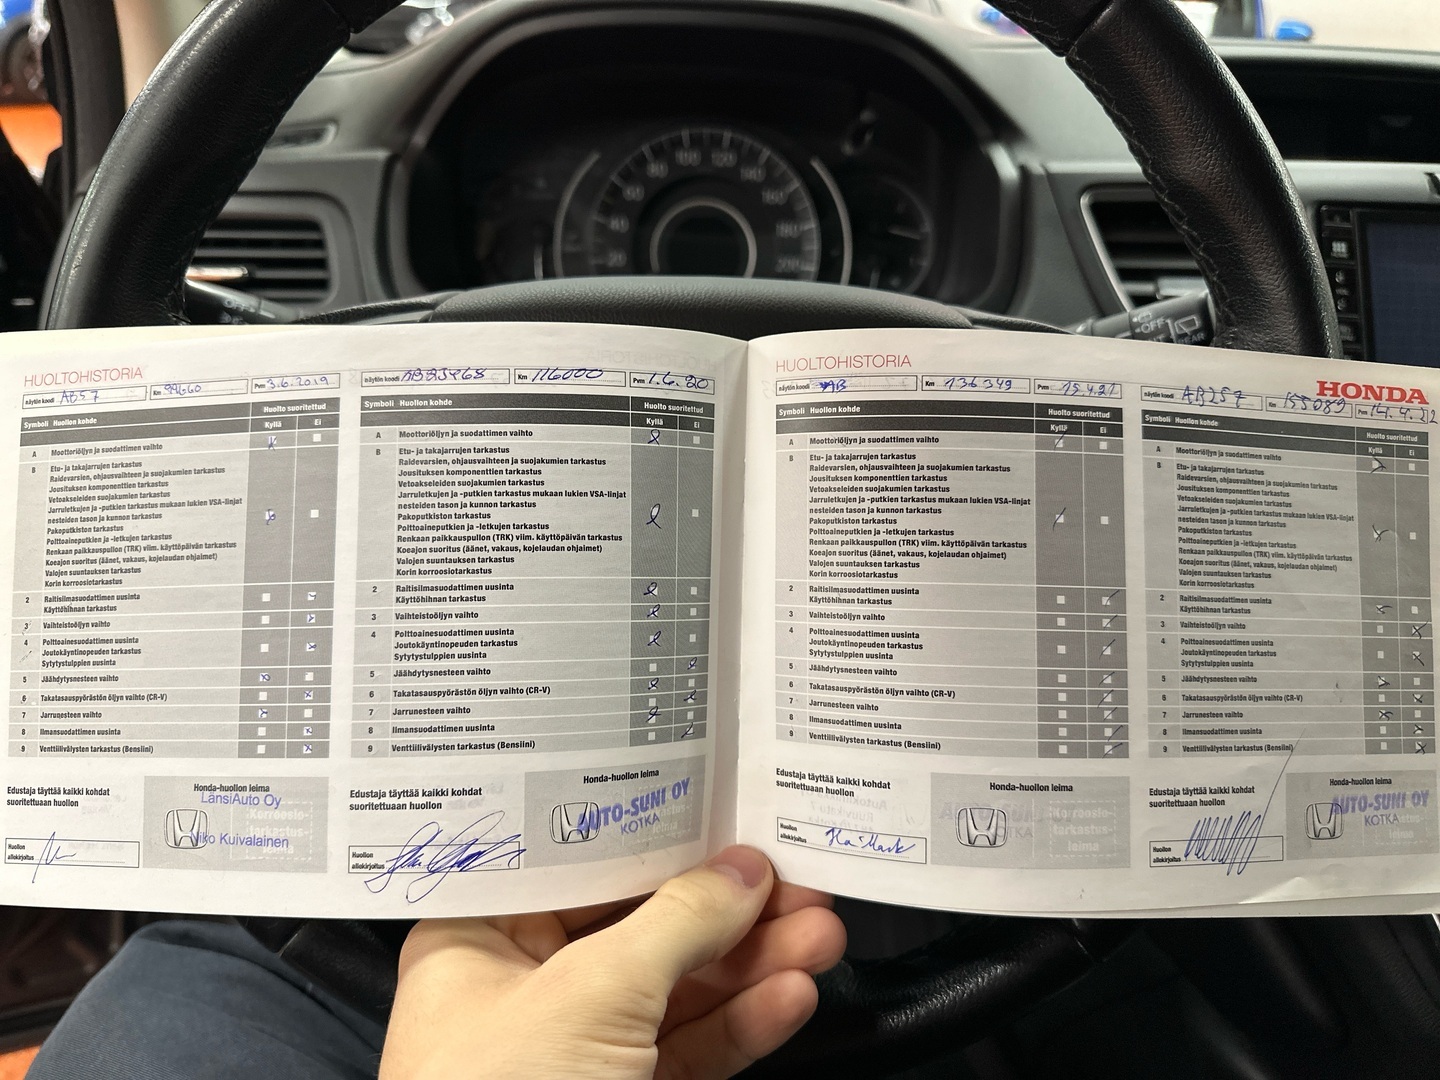 HUOLTOHISTORIA
näytön koodi AB57 Km 99660 Pvm 3.6.2019
Symboli Huollon kohde Huolto suoritettud
Kyllä Ei
A Moottoriöljyn ja suodattimen vaihto
B Etu- ja takajarrujen tarkastus
Raidevarsien, ohjausvaihteen ja suojakumien tarkastus
Jousituksen komponenttien tarkastus
Vetoakseleiden suojakumien tarkastus
Jarruletkujen ja -putkien tarkastus mukaan lukien VSA-linjat
nesteiden tason ja kunnon tarkastus
Pakoputkiston tarkastus
Polttoaineputkien ja -letkujen tarkastus
Renkaan paikkauspullon (TRK) viim. käyttöpäivän tarkastus
Koeajon suoritus (äänet, vakaus, kojelaudan ohjaimet)
Valojen suuntauksen tarkastus
Korin korroosiotarkastus
2 Raitisilmasuodattimen uusinta
Käyttöhihnan tarkastus
3 Vaihteistoöljyn vaihto
4 Polttoainesuodattimen uusinta
Joutokäyntinopeuden tarkastus
Sytytystulppien uusinta
5 Jäähdytysnesteen vaihto
6 Takatasauspyörästön öljyn vaihto (CR-V)
7 Jarrunesteen vaihto
8 Ilmansuodattimen uusinta
9 Venttiilivälysten tarkastus (Bensiini)
Edustaja täyttää kaikki kohdat
suoritettuaan huollon
Honda-huollon leima
LänsiAuto Oy
Korroosio-
tarkastus-
leima
Niko Kuivalainen
Huollon
allekirjoitus
näytön koodi Km 116000 Pvm 1.6.20
Symboli Huollon kohde Huolto suoritettud
Kyllä Ei
A Moottoriöljyn ja suodattimen vaihto
B Etu- ja takajarrujen tarkastus
Raidevarsien, ohjausvaihteen ja suojakumien tarkastus
Jousituksen komponenttien tarkastus
Vetoakseleiden suojakumien tarkastus
Jarruletkujen ja -putkien tarkastus mukaan lukien VSA-linjat
nesteiden tason ja kunnon tarkastus
Pakoputkiston tarkastus
Polttoaineputkien ja -letkujen tarkastus
Renkaan paikkauspullon (TRK) viim. käyttöpäivän tarkastus
Koeajon suoritus (äänet, vakaus, kojelaudan ohjaimet)
Valojen suuntauksen tarkastus
Korin korroosiotarkastus
2 Raitisilmasuodattimen uusinta
Käyttöhihnan tarkastus
3 Vaihteistoöljyn vaihto
4 Polttoainesuodattimen uusinta
Joutokäyntinopeuden tarkastus
Sytytystulppien uusinta
5 Jäähdytysnesteen vaihto
6 Takatasauspyörästön öljyn vaihto (CR-V)
7 Jarrunesteen vaihto
8 Ilmansuodattimen uusinta
9 Venttiilivälysten tarkastus (Bensiini)
Edustaja täyttää kaikki kohdat
suoritettuaan huollon
Honda-huollon leima
AUTO-SUNI OY
KOTKA
Huollon
allekirjoitus
HUOLTOHISTORIA
näytön koodi AB Km 136349 Pvm 15.4.21
Symboli Huollon kohde Huolto suoritettud
Kyllä Ei
A Moottoriöljyn ja suodattimen vaihto
B Etu- ja takajarrujen tarkastus
Raidevarsien, ohjausvaihteen ja suojakumien tarkastus
Jousituksen komponenttien tarkastus
Vetoakseleiden suojakumien tarkastus
Jarruletkujen ja -putkien tarkastus mukaan lukien VSA-linjat
nesteiden tason ja kunnon tarkastus
Pakoputkiston tarkastus
Polttoaineputkien ja -letkujen tarkastus
Renkaan paikkauspullon (TRK) viim. käyttöpäivän tarkastus
Koeajon suoritus (äänet, vakaus, kojelaudan ohjaimet)
Valojen suuntauksen tarkastus
Korin korroosiotarkastus
2 Raitisilmasuodattimen uusinta
Käyttöhihnan tarkastus
3 Vaihteistoöljyn vaihto
4 Polttoainesuodattimen uusinta
Joutokäyntinopeuden tarkastus
Sytytystulppien uusinta
5 Jäähdytysnesteen vaihto
6 Takatasauspyörästön öljyn vaihto (CR-V)
7 Jarrunesteen vaihto
8 Ilmansuodattimen uusinta
9 Venttiilivälysten tarkastus (Bensiini)
Edustaja täyttää kaikki kohdat
suoritettuaan huollon
Honda-huollon leima
Korroosio-
tarkastus-
leima
Huollon
allekirjoitus
HONDA
näytön koodi AB257 Km 155089 Pvm 14.4.22
Symboli Huollon kohde Huolto suoritettud
Kyllä Ei
A Moottoriöljyn ja suodattimen vaihto
B Etu- ja takajarrujen tarkastus
Raidevarsien, ohjausvaihteen ja suojakumien tarkastus
Jousituksen komponenttien tarkastus
Vetoakseleiden suojakumien tarkastus
Jarruletkujen ja -putkien tarkastus mukaan lukien VSA-linjat
nesteiden tason ja kunnon tarkastus
Pakoputkiston tarkastus
Polttoaineputkien ja -letkujen tarkastus
Renkaan paikkauspullon (TRK) viim. käyttöpäivän tarkastus
Koeajon suoritus (äänet, vakaus, kojelaudan ohjaimet)
Valojen suuntauksen tarkastus
Korin korroosiotarkastus
2 Raitisilmasuodattimen uusinta
Käyttöhihnan tarkastus
3 Vaihteistoöljyn vaihto
4 Polttoainesuodattimen uusinta
Joutokäyntinopeuden tarkastus
Sytytystulppien uusinta
5 Jäähdytysnesteen vaihto
6 Takatasauspyörästön öljyn vaihto (CR-V)
7 Jarrunesteen vaihto
8 Ilmansuodattimen uusinta
9 Venttiilivälysten tarkastus (Bensiini)
Edustaja täyttää kaikki kohdat
suoritettuaan huollon
Honda-huollon leima
AUTO-SUNI OY
KOTKA
Huollon
allekirjoitus
20 40 60 80 100 120 140 160 180 200
OFF
REAR